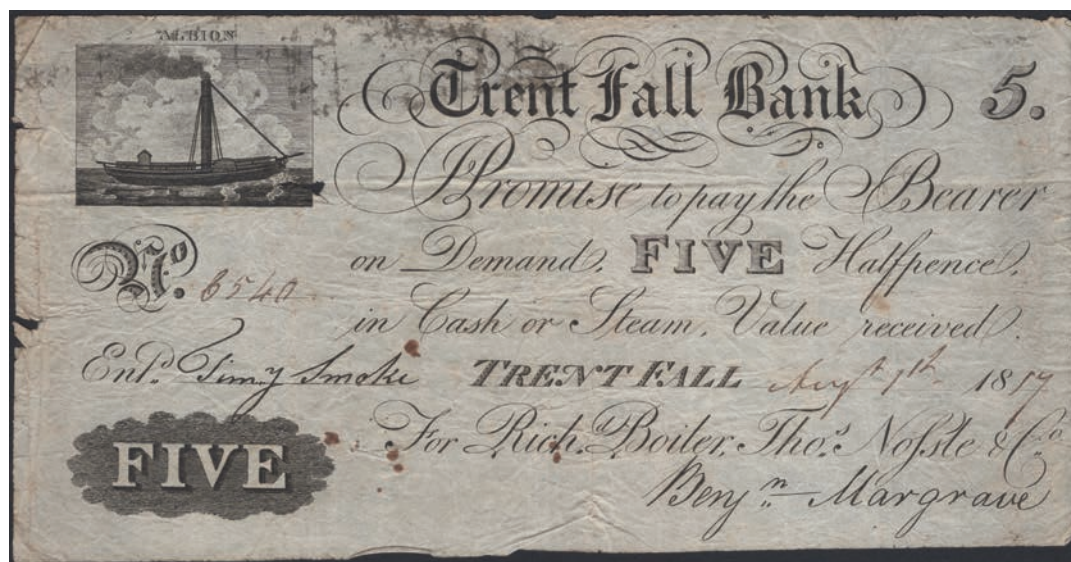 ALBION
Trent Fall Bank 5.
I Promise to pay the Bearer
on Demand, FIVE Halfpence,
in Cash or Steam, Value received.
No. 6540
Entd. Timy Smoke TRENT FALL Augt 1th 1817
For Richd. Boiler, Thos. Nofsle & Co.
FIVE
Benjn Margrave